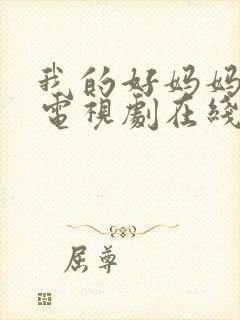 我的好妈妈
電視劇在綫
屈尊